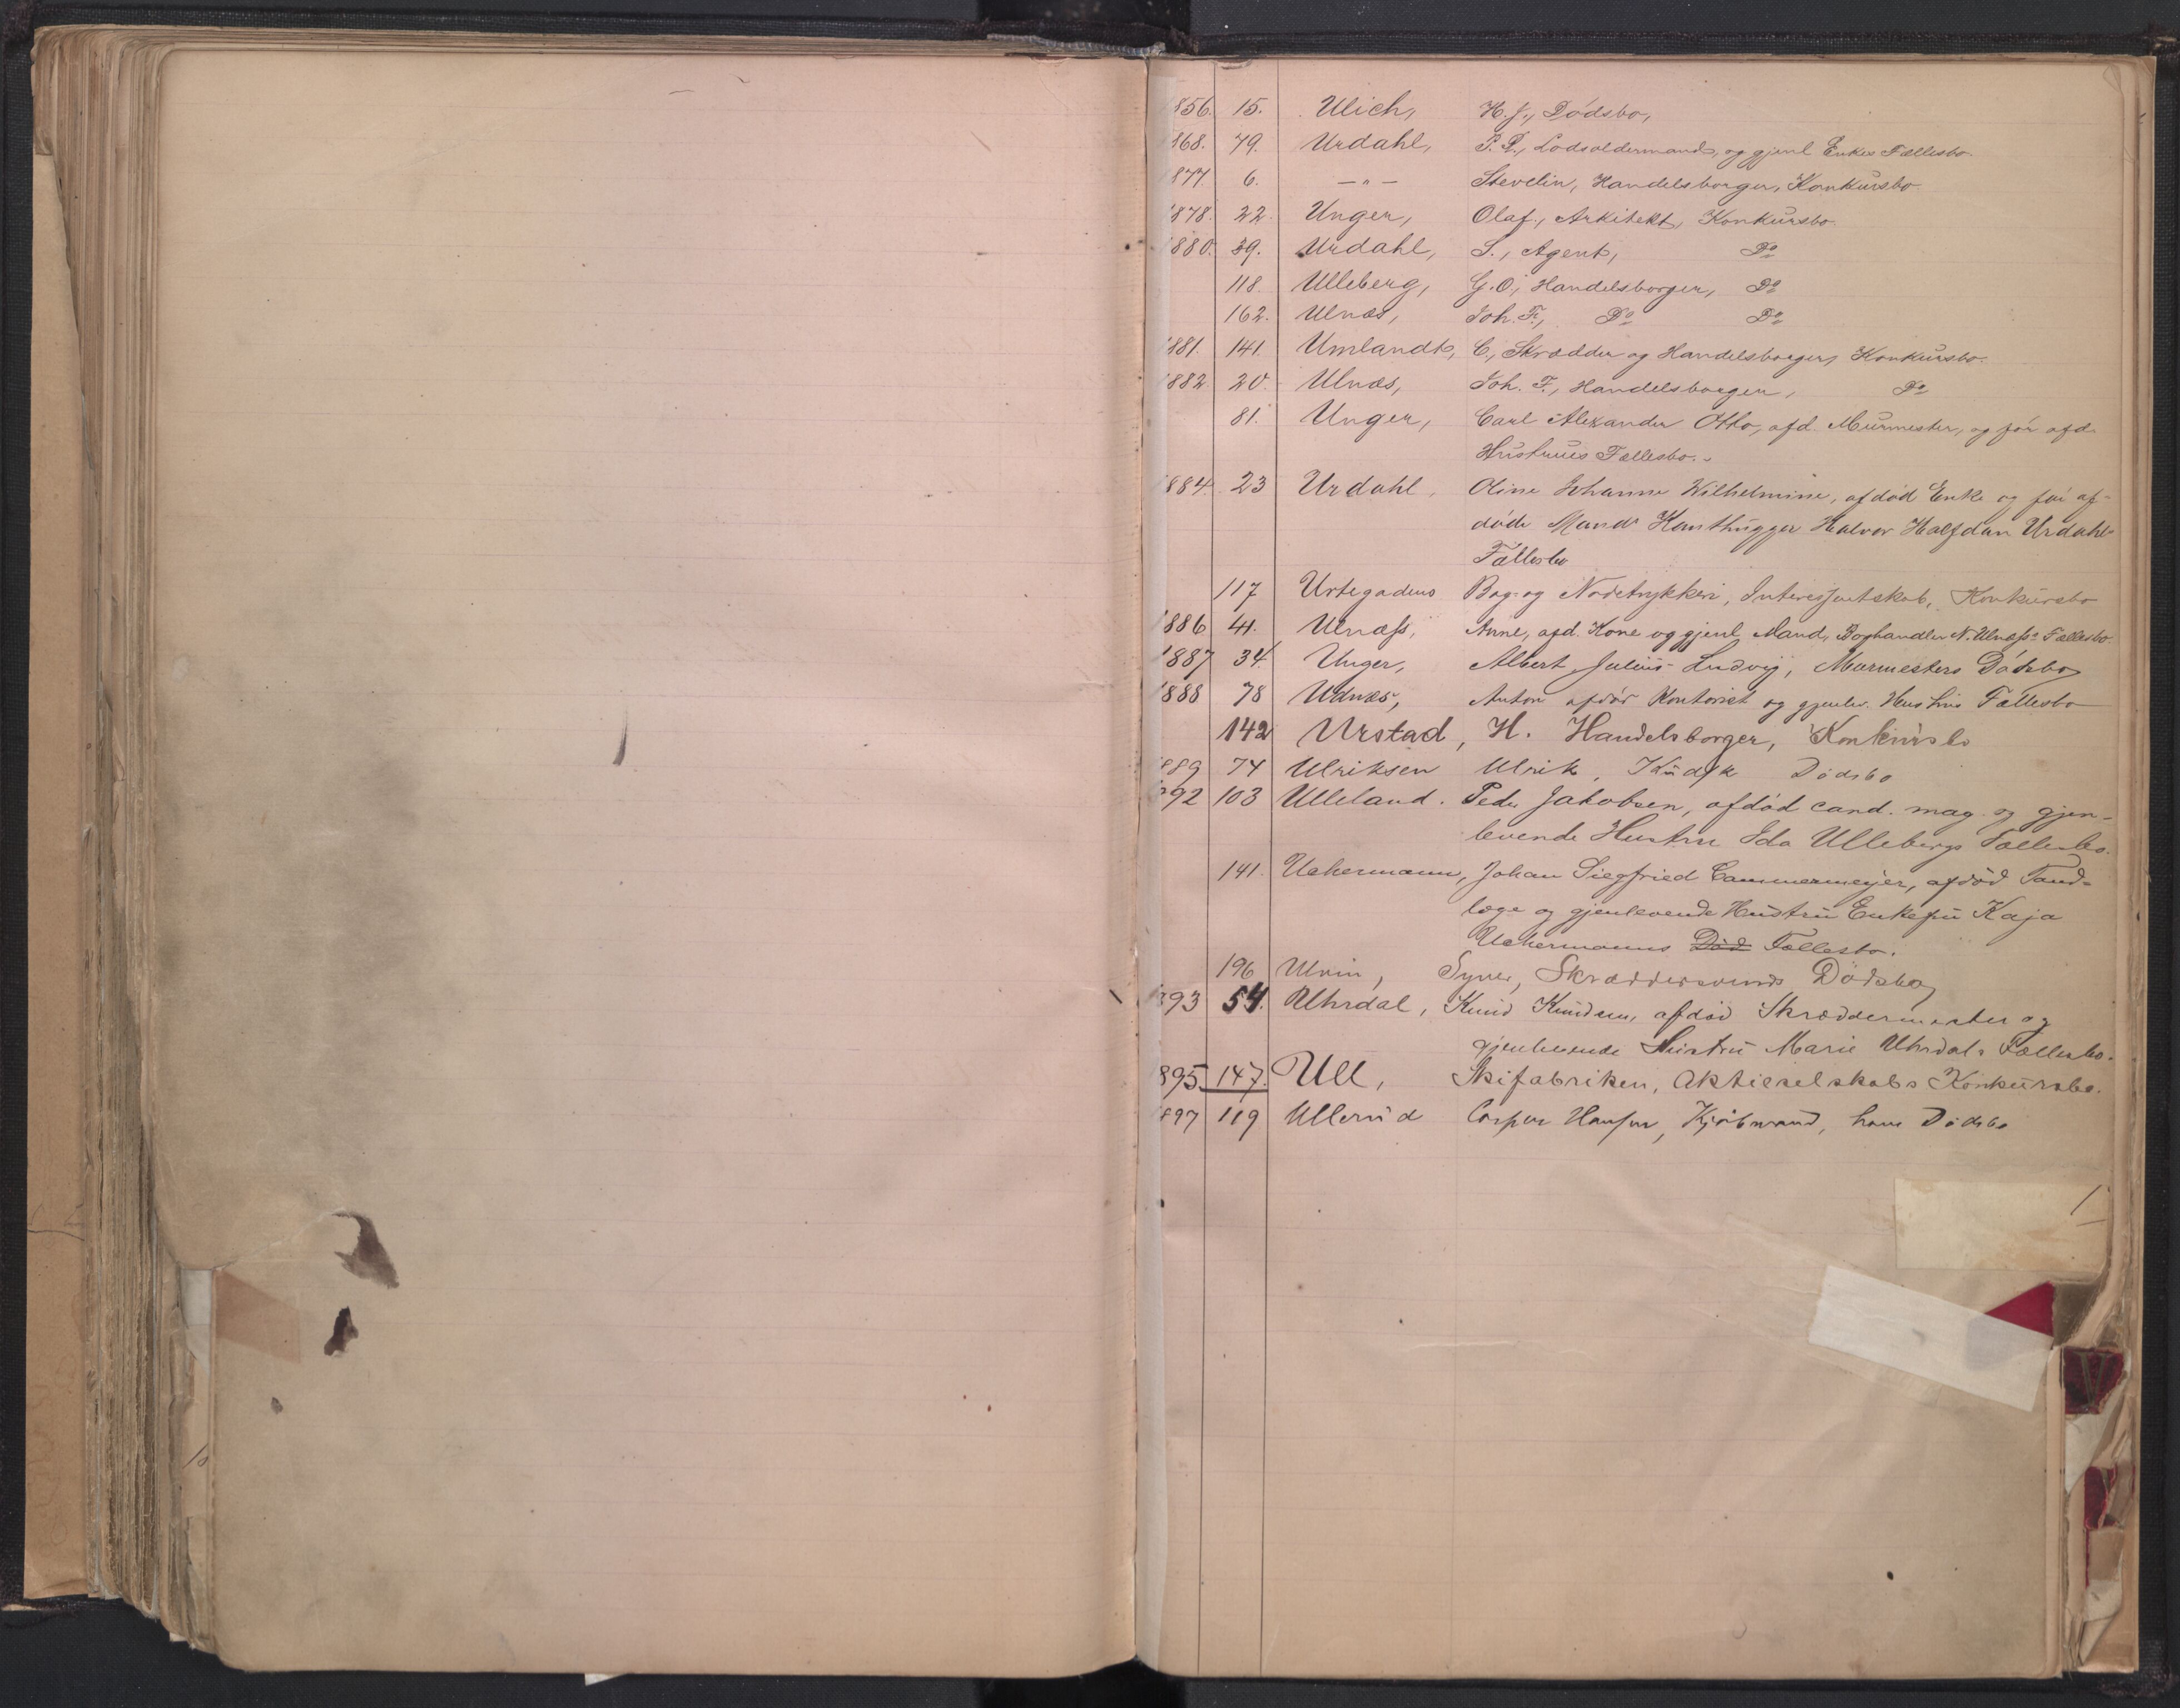 1856. 15. Ulich, H. J., Dødsbo,
1868. 79. Urdahl, P. P., Lodsoldermands, og gjenl Enkes Fællesbo
1877. 6. —"— Stevelin, Handelsborger, Konkursbo
1878. 22. Unger, Olaf, Arkitekt, Konkursbo.
1880. 39. Urdahl, S., Agent, Do
118. Ulleberg, G. O., Handelsborger, Do
162. Ulnæs, Joh. F., Do Do
1881. 141. Umlandt, C., Skrædder og Handelsborger, Konkursbo.
1882. 20. Ulnæs, Joh. F., Handelsborger, Do
81. Unger, Carl Alexander Otto, afd. Murmester, og før afd.
Hustrues Fællesbo.
1884. 23 Urdahl, Oline Johanne Wilhelmine, afdød Enke og før af-
døde Mands Kunsthugger Halvor Halfdan Urdahls
Fællesbo
117 Urtegadens Bog- og Nodetrykkeri, Interessentskab, Konkursbo
1886 41. Ulnæss, Anne, afd. Kone og gjenl Mand, Boghandler N. Ulnæss's Fællesbo.
1887 34. Unger, Albert Julius Ludvig, Murmesters Dødsbo
1888 78 Udnæs, Anton afdød Kontorist og gjenlev. Hustrus Fællesbo
142 Urstad, H. Handelsborger, Konkursbo
1889 74 Ulriksen Ulrik, Kudsk Dødsbo
1892 103 Ulleland. Peder Jakobsen, afdød cand. mag. og gjen-
levende Hustru Ida Ullebergs Fællesbo.
141. Uchermann, Johan Siegfried Cammermeyer, afdød Tand-
læge og gjenlevende Hustru Enkefru Kaja
Uchermanns Død Fællesbo.
196 Ulvin, Syver, Skræddersvends Dødsbo
1893 54. Uhrdal, Knud Knudsen, afdød Skræddermester og
gjenlevende Hustru Marie Uhrdals Fællesbo.
1895. 147. Ull, Skifabriken, Aktieselskabs Konkursbo.
1897 119 Ullerud Casper Hansen, Kjøbmand, hans Dødsbo